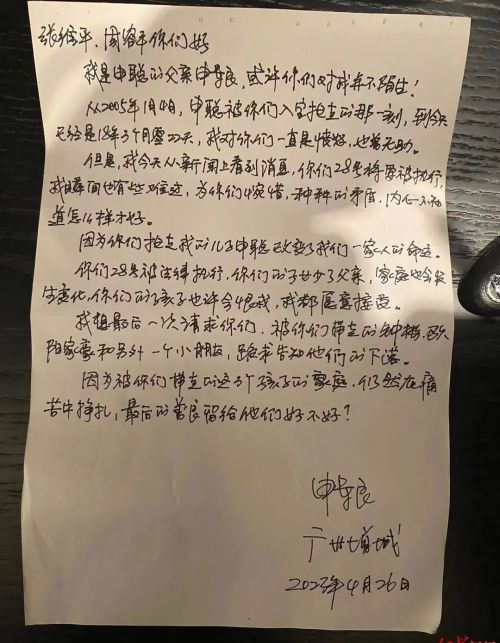 张维平、周容平你们好
我是申聪的父亲申军良,或许你们对我并不陌生!
从2005年1月4日,申聪被你们入室抢走的那一刻,到今天
已经是18年3个月零22天,我对你们一直是愤怒,也曾无助。
但是,我今天从新闻上看到消息,你们28号将要被执行,
我瞬间也有些难过,为你们惋惜,种种的矛盾,内心不知
道怎么样才好。
因为你们抢走我的儿子申聪改变了我们一家人的命运。
你们28号被法律执行,你们的子女少了父亲,家庭也会发
生变化,你们的孩子也许会恨我,我都愿意接受。
我想最后一次请求你们,被你们带走的钟彬、欧
阳家豪和另外一个小朋友,跪求告知他们的下落。
因为被你们带走的这3个孩子的家庭,仍然在痛
苦中挣扎,最后的善良留给他们好不好!
申军良
广州增城
2023年4月26日